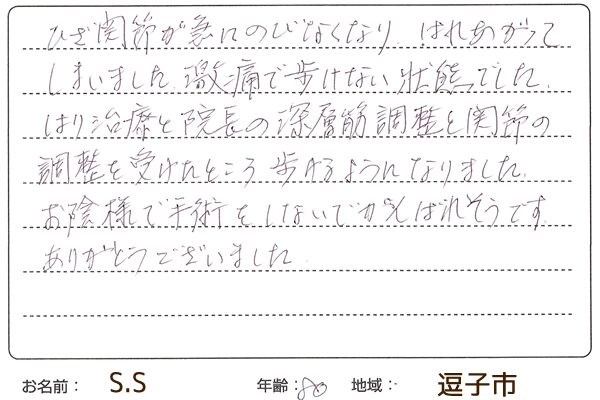 ひざ関節が急にのびなくなり はれあがって
しまいました。激痛で歩けない状態でした。
はり治療と院長の深層筋調整と関節の
調整を受けたところ歩けるようになりました。
お陰様で手術をしないでがんばれそうです。
ありがとうございました。
お名前： S.S 年齢：80 地域： 逗子市